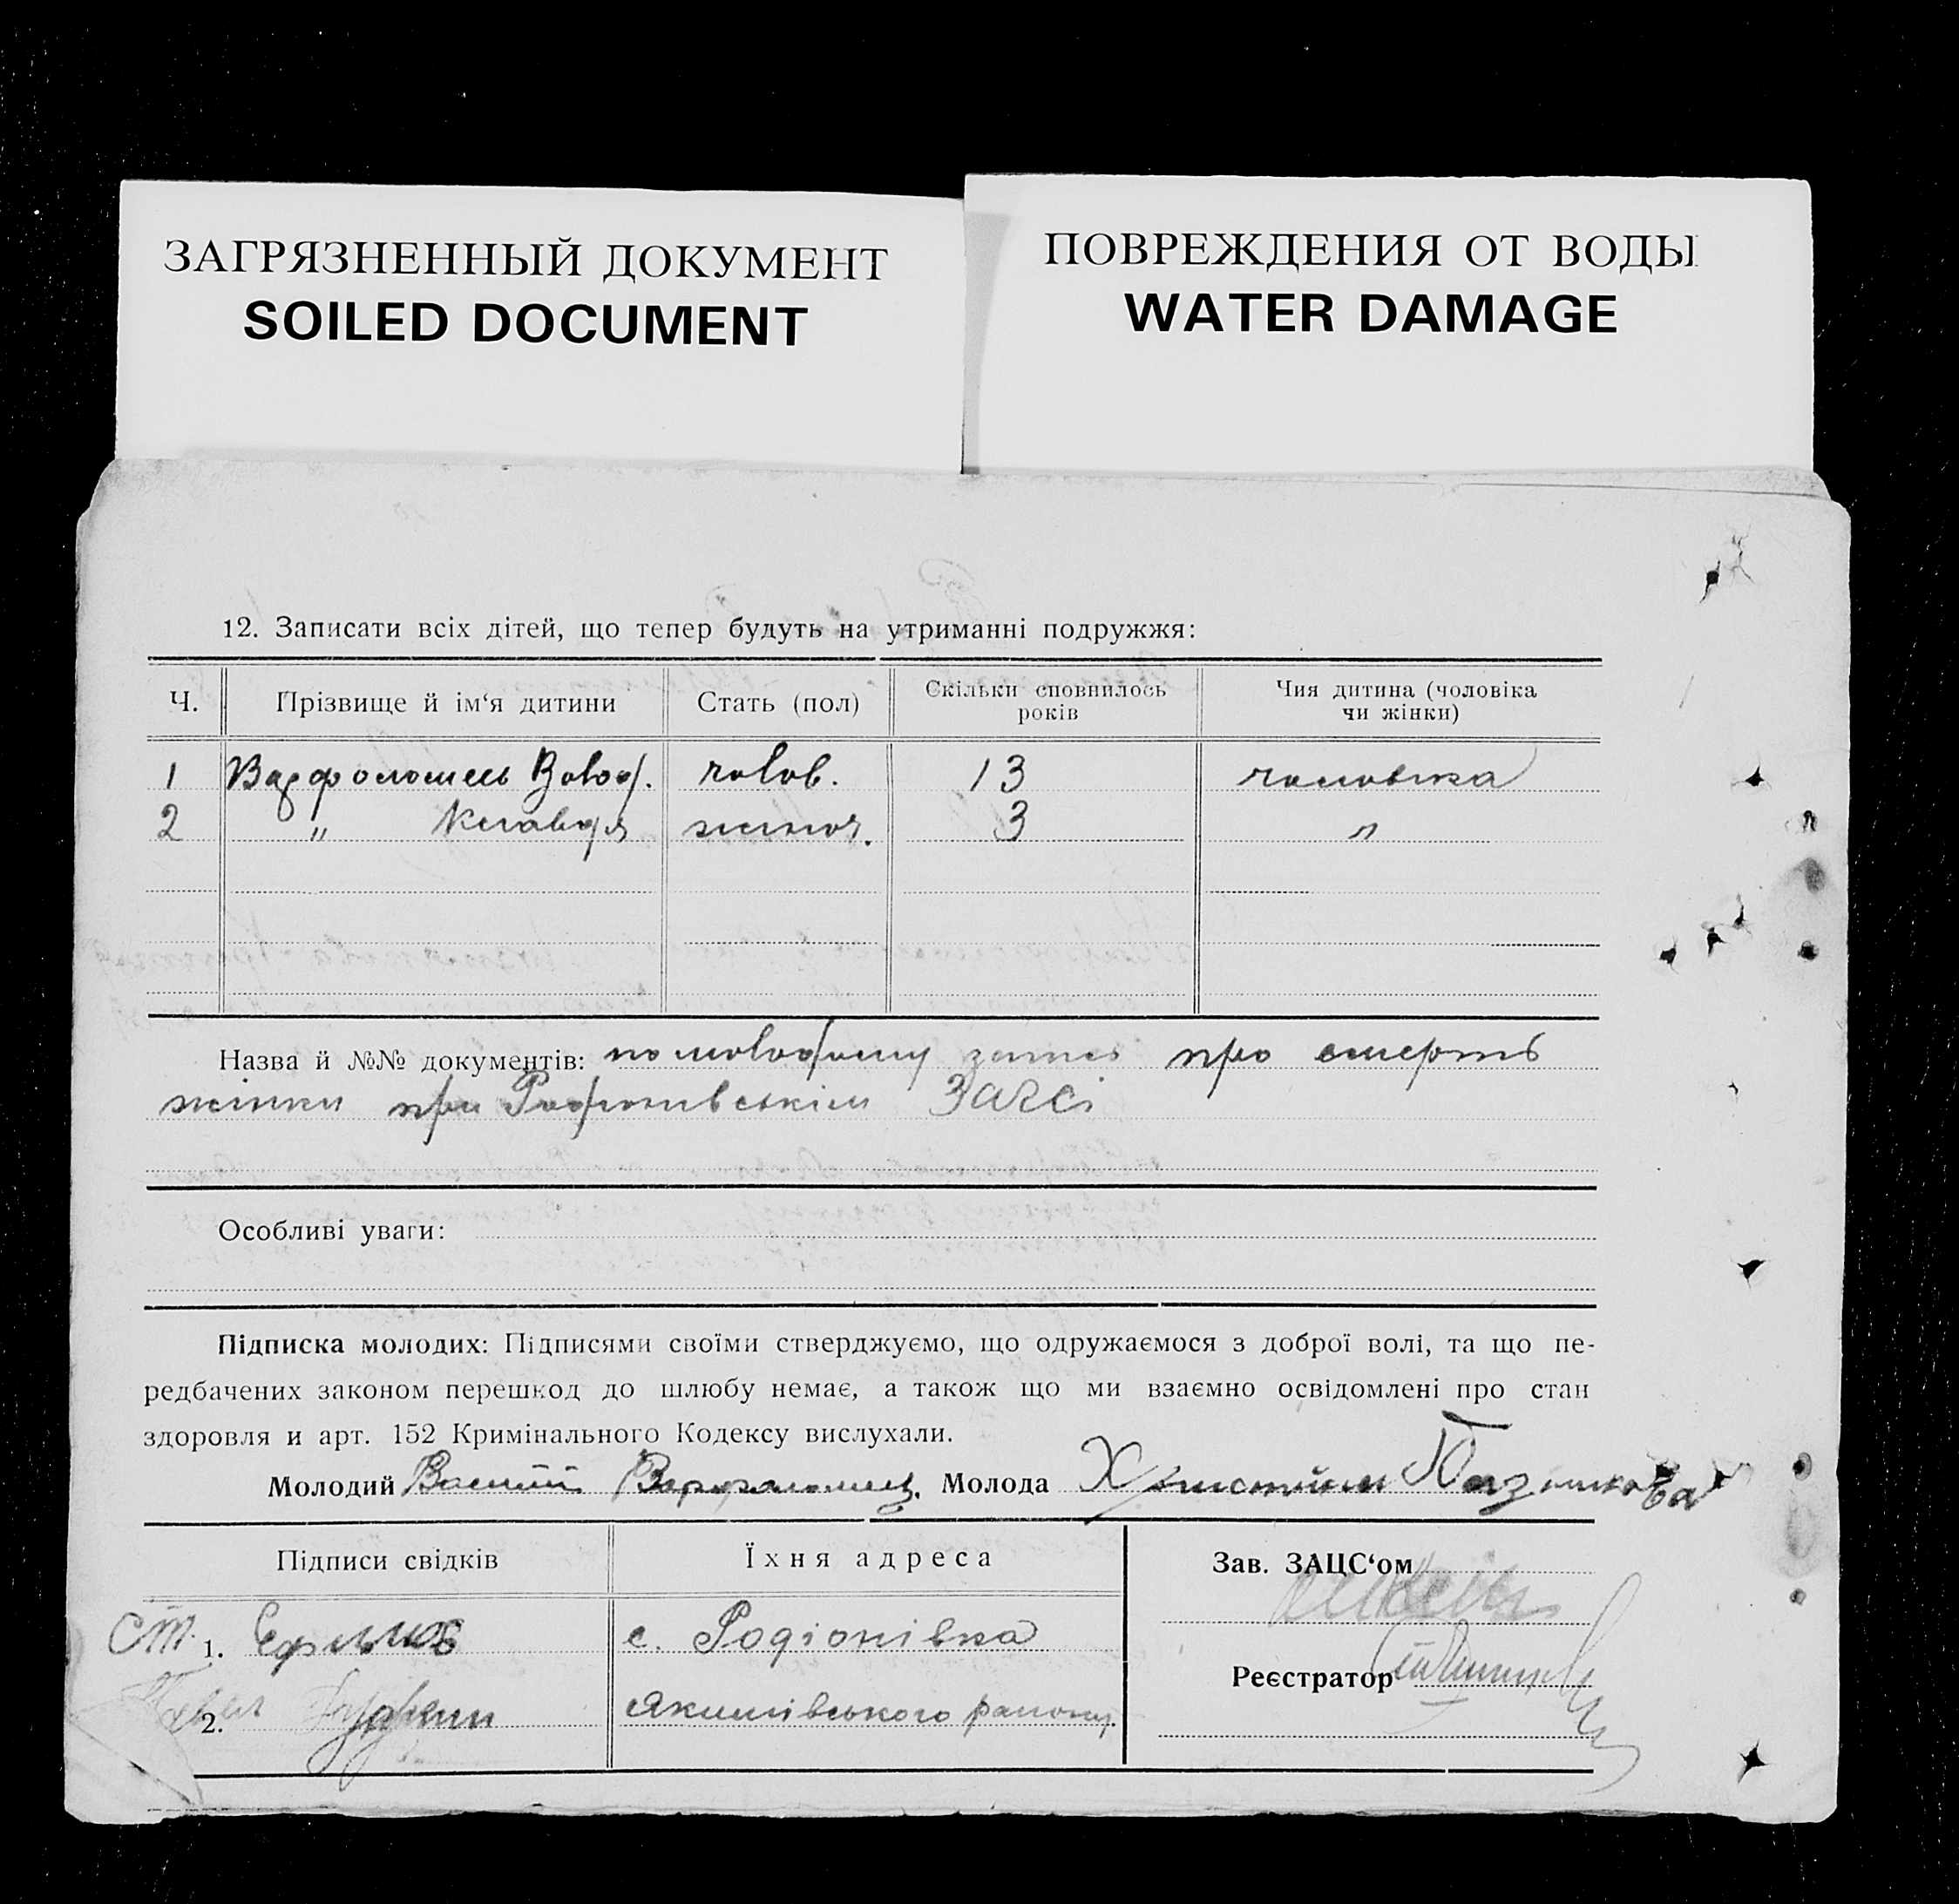 ЗАГРЯЗНЕННЫЙ ДОКУМЕНТ
SOILED DOCUMENT
ПОВРЕЖДЕНИЯ ОТ ВОДЫ
WATER DAMAGE
12. Записати всіх дітей, що тепер будуть на утриманні подружжя:
Ч. Прізвище й ім‘я дитини Стать (пол) Скільки сповнилось років Чия дитина (чоловіка чи жінки)
1 Варфоломець Волод. чолов. 13 чоловіка
2 " Клавдя жіноч. 3 "
Назва й №№ документів: по молодому запис про смерть
жінки при Родионівськім ЗАГСі
Особливі уваги:
Підписка молодих: Підписями своїми стверджуємо, що одружаємося з доброї волі, та що пе-
редбачених законом перешкод до шлюбу немає, а також що ми взаємно освідомлені про стан
здоровля и арт. 152 Кримінального Кодексу вислухали.
Молодий Василий Варфаломец. Молода Христиния
Підписи свідків Їхня адреса Зав. ЗАЦС‘ом
1. с. Родіонівка
Реєстратор
2. Якимівського району.